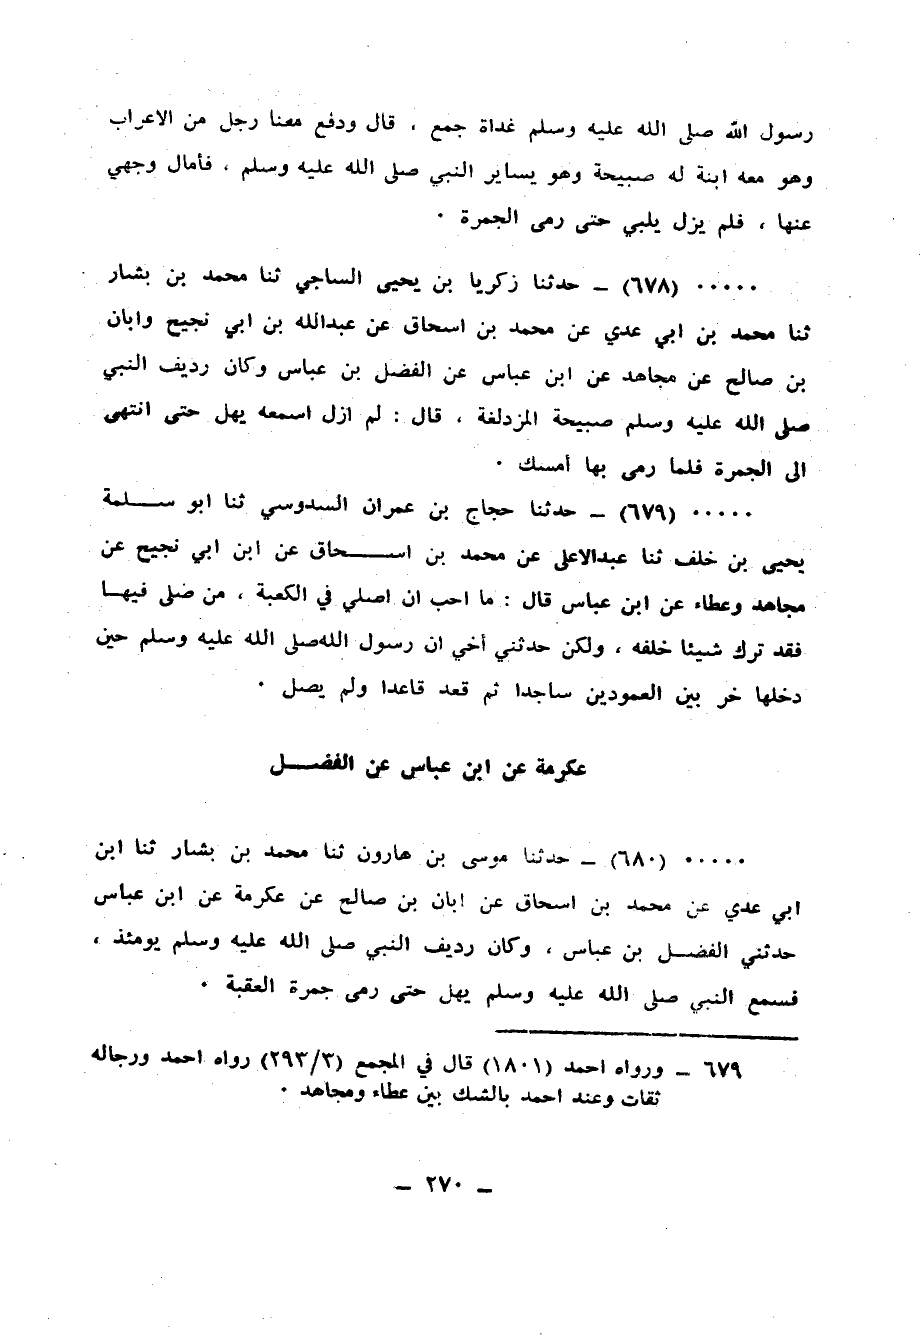 رسول الله صلى الله عليه وسلم غداة جمع ، قال ودفع معنا رجل من الاعراب
وهو معه ابنة له صبيحة وهو يساير النبي صلى الله عليه وسلم ، فأمال وجهي
عنها ، فلم يزل يلبي حتى رمى الجمرة ٠
٠٠٠٠٠ (٦٧٨) ــ حدثنا زكريا بن يحيى الساجي ثنا محمد بن بشار
ثنا محمد بن ابي عدي عن محمد بن اسحاق عن عبدالله بن ابي نجيح وابان
بن صالح عن مجاهد عن ابن عباس عن الفضل بن عباس وكان رديف النبي
صلى الله عليه وسلم صبيحة المزدلفة ، قال : لم ازل اسمعه يهل حتى انتهى
الى الجمرة فلما رمى بها أمسك ٠
٠٠٠٠٠ (٦٧٩) ــ حدثنا حجاج بن عمران السدوسي ثنا ابو ســـلمة
يحيى بن خلف ثنا عبدالاعلى عن محمد بن اســـحاق عن ابن ابي نجيح عن
مجاهد وعطاء عن ابن عباس قال : ما احب ان اصلي في الكعبة ، من صلى فيهـا
فقد ترك شيئا خلفه ، ولكن حدثني أخي ان رسول الله صلى الله عليه وسلم حين
دخلها خر بين العمودين ساجدا ثم قعد قاعدا ولم يصل ٠
عكرمة عن ابن عباس عن الفضـــل
٠٠٠٠٠ (٦٨٠) ــ حدثنا موسى بن هارون ثنا محمد بن بشار ثنا ابن
ابي عدي عن محمد بن اسحاق عن ابان بن صالح عن عكرمة عن ابن عباس
حدثني الفضـــل بن عباس ، وكان رديف النبي صلى الله عليه وسلم يومئذ ،
فسمع النبي صلى الله عليه وسلم يهل حتى رمى جمرة العقبة ٠
٦٧٩ ــ ورواه احمد (١٨٠١) قال في المجمع (٢٩٣/٣) رواه احمد ورجاله
ثقات وعند احمد بالشك بين عطاء ومجاهد ٠
ــ ٢٧٠ ــ